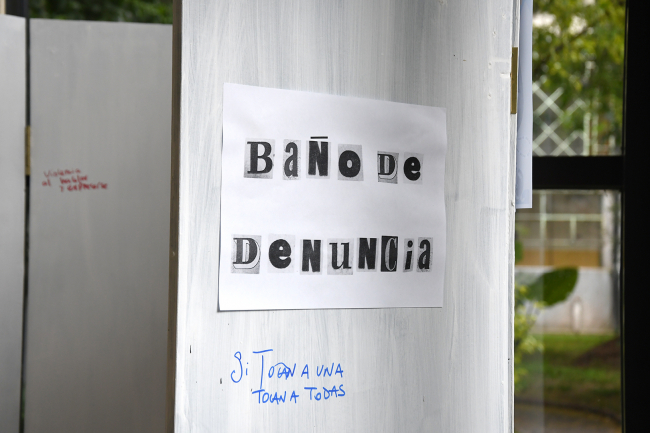 BaÑo De
DenunCia
Si TOCAN A UNA
TOCAN A TODAS
Violencia
al hablar